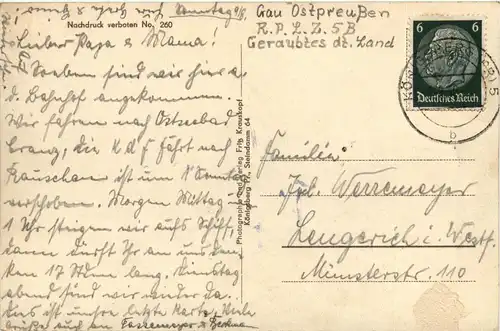 Nachdruck verboten No. 260
Sonntag
Lieber Papa & Mama!
Soeben sind wir hier a.
d. Bahnhof angekommen.
Wir fahren nach Ostseebad
Cranz, die K.d.F. Fahrt nach
Rauschen ist um Sonntag
verschoben. Morgen Mittag um
1 Uhr steigen wir aufs Schiff,
dann dürft Ihr an uns den-
ken 17 Stdn lang. Dienstag
abend sind wir wieder da.
Dies ist unsre letzte Karte. Viele
Grüße auch an
Gau Ostpreußen
R.P.L.Z. 5B
Geraubtes dt. Land
6 6
Deutsches Reich
b
Photographie und Verlag Fritz Krauskopf
Königsberg Pr., Steindamm 64
Familie
Jos. Werremeyer
Lengerich i. Westf.
Münsterstr. 110